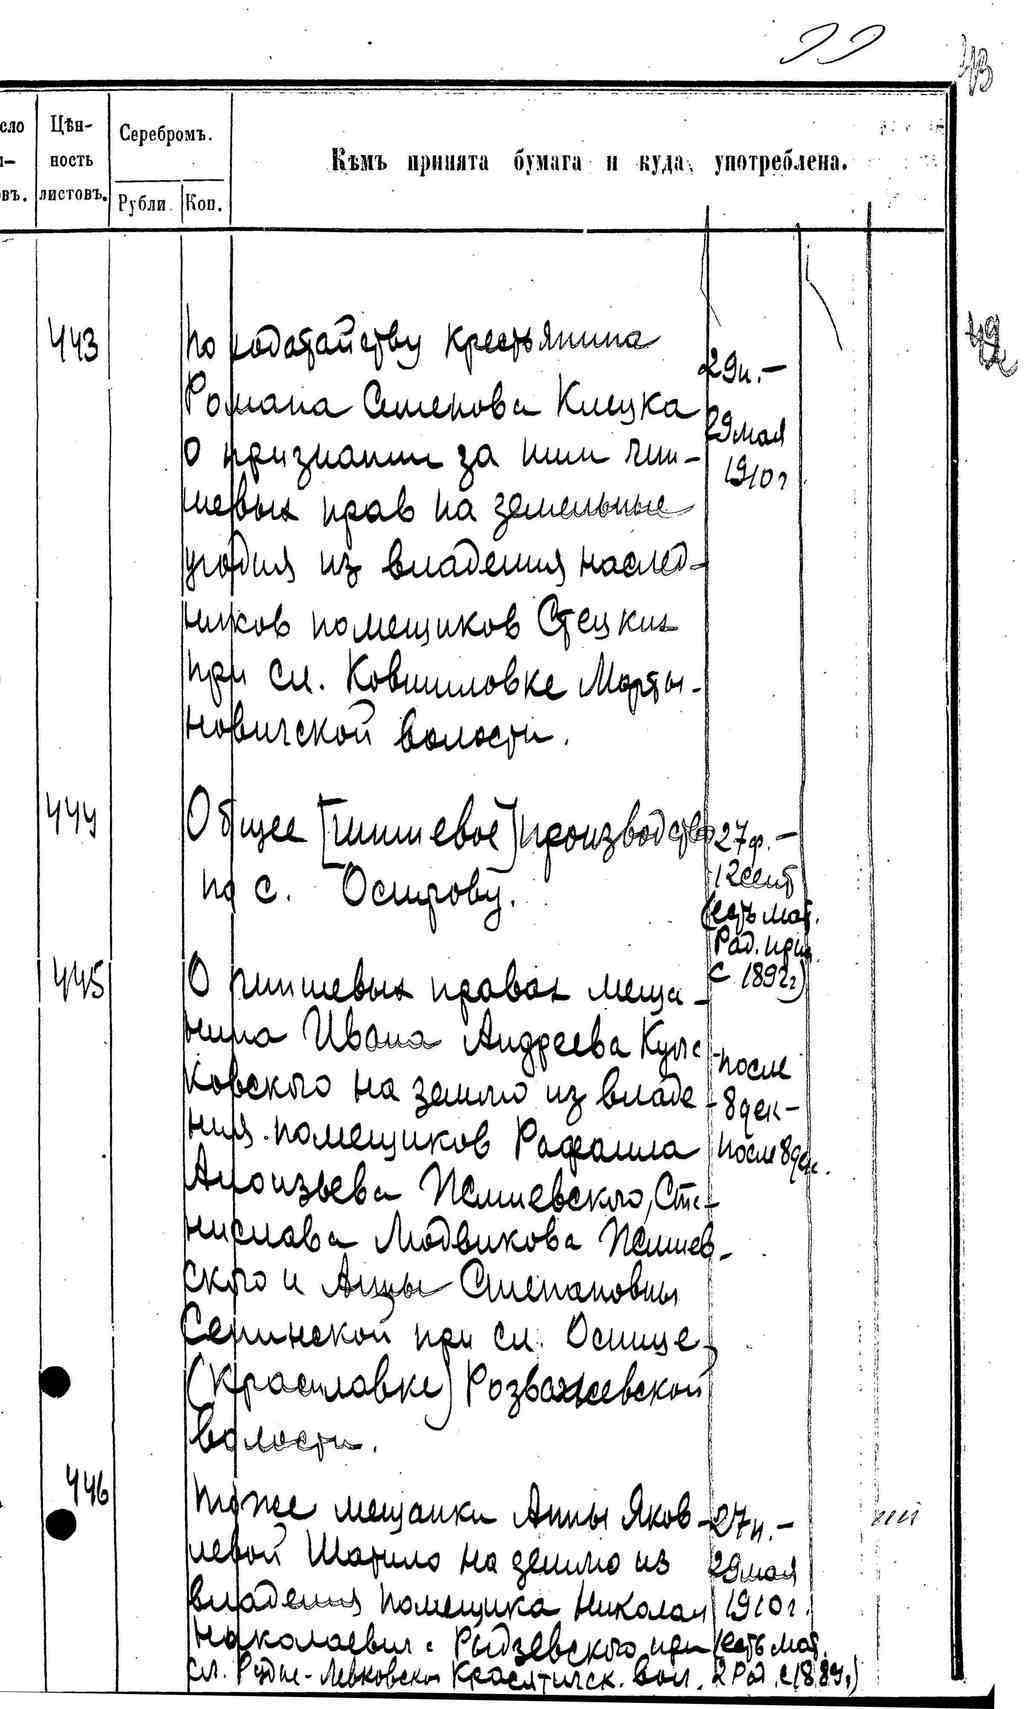 22
43
сло
Цѣн-
ность
листовъ.
Серебромъ.
Рубли.
Коп.
Кѣмъ принята бумага и куда употреблена.
42
443
По ходатайству крестьянина
Романа Семенова Клецка
о признании за ним чин-
шевых прав на земельные
угодия из владения наслед-
ников помещиков Стецких
при сл. Ковшиловке Марты-
новичской волости.
29н.-
29 мая
1910 г
444
Общее [чиншевое] производство
по с. Острову.
27ф.-
12 сент
(есть мат.
Рад.
с 1892 г)
445
О чиншевых правах меща-
нина Ивана Андреева
ковского на землю из владе-
ния помещиков Рафаила
Алоизьева
Ста-
нислава Людвикова
ского и Анны Степановны
Сепинской при сл.
(Красиловке) Розважевской
волости.
после
8 дек-
после 8 дек.
446
То же мещанки Анны Яков-
левой Шатило на землю из
владения помещика Николая
Николаевича Рыдзевского при
сл. Рудне-Левковской Красятичск. вол.
27н.-
29 мая
1910 г.
(есть мат.